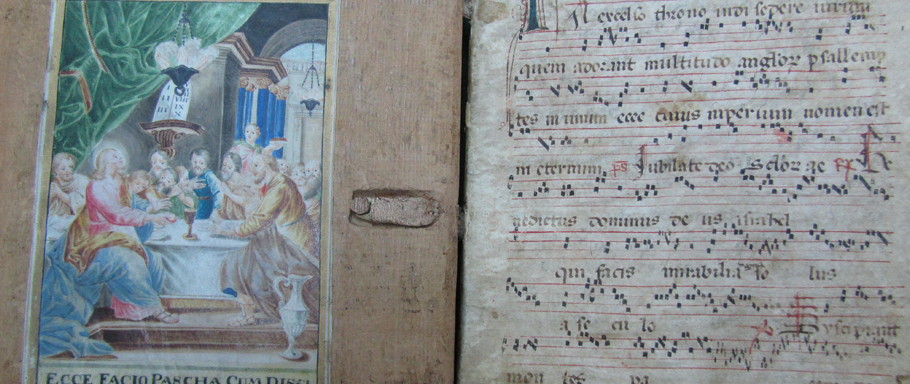 ECCE FACIO PASCHA CUM DISCI
In excelso throno uidi sedere uirum
quem adorant multitudo anglor psallem
tes in unum ecce cuius imperium nomen est
in eternum ps Jubilate deo Be
nedictus dominus de us israhel
qui facis mirabilia so lus
a se cu lo Suscipiant
mon tes pa